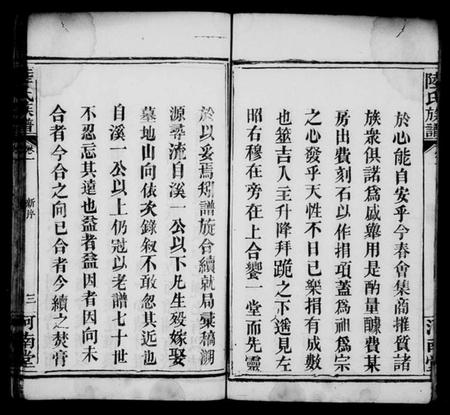 陸氏族譜
於心能自安乎今春會集商搉質諸
族衆俱諾爲咸舉用是酌量醵費某
房出費刻石以作捐項蓋爲祖爲宗
之心發乎天性不日已樂捐有成數
也筮吉入主升降拜跪之下遙見左
昭右穆在旁在上合饗一堂而先靈
於以妥焉矧譜旋台續就局彙稿溯
源尋流自溪一公以下凡生殁嫁娶
墓地山向依次錄叙不敢忽其近也
自溪一公以上仍冠以老譜七十世
不忍忘其遠也益者益因者因向未
合者今合之向已合者今續之焚膏
新序
三
河南堂